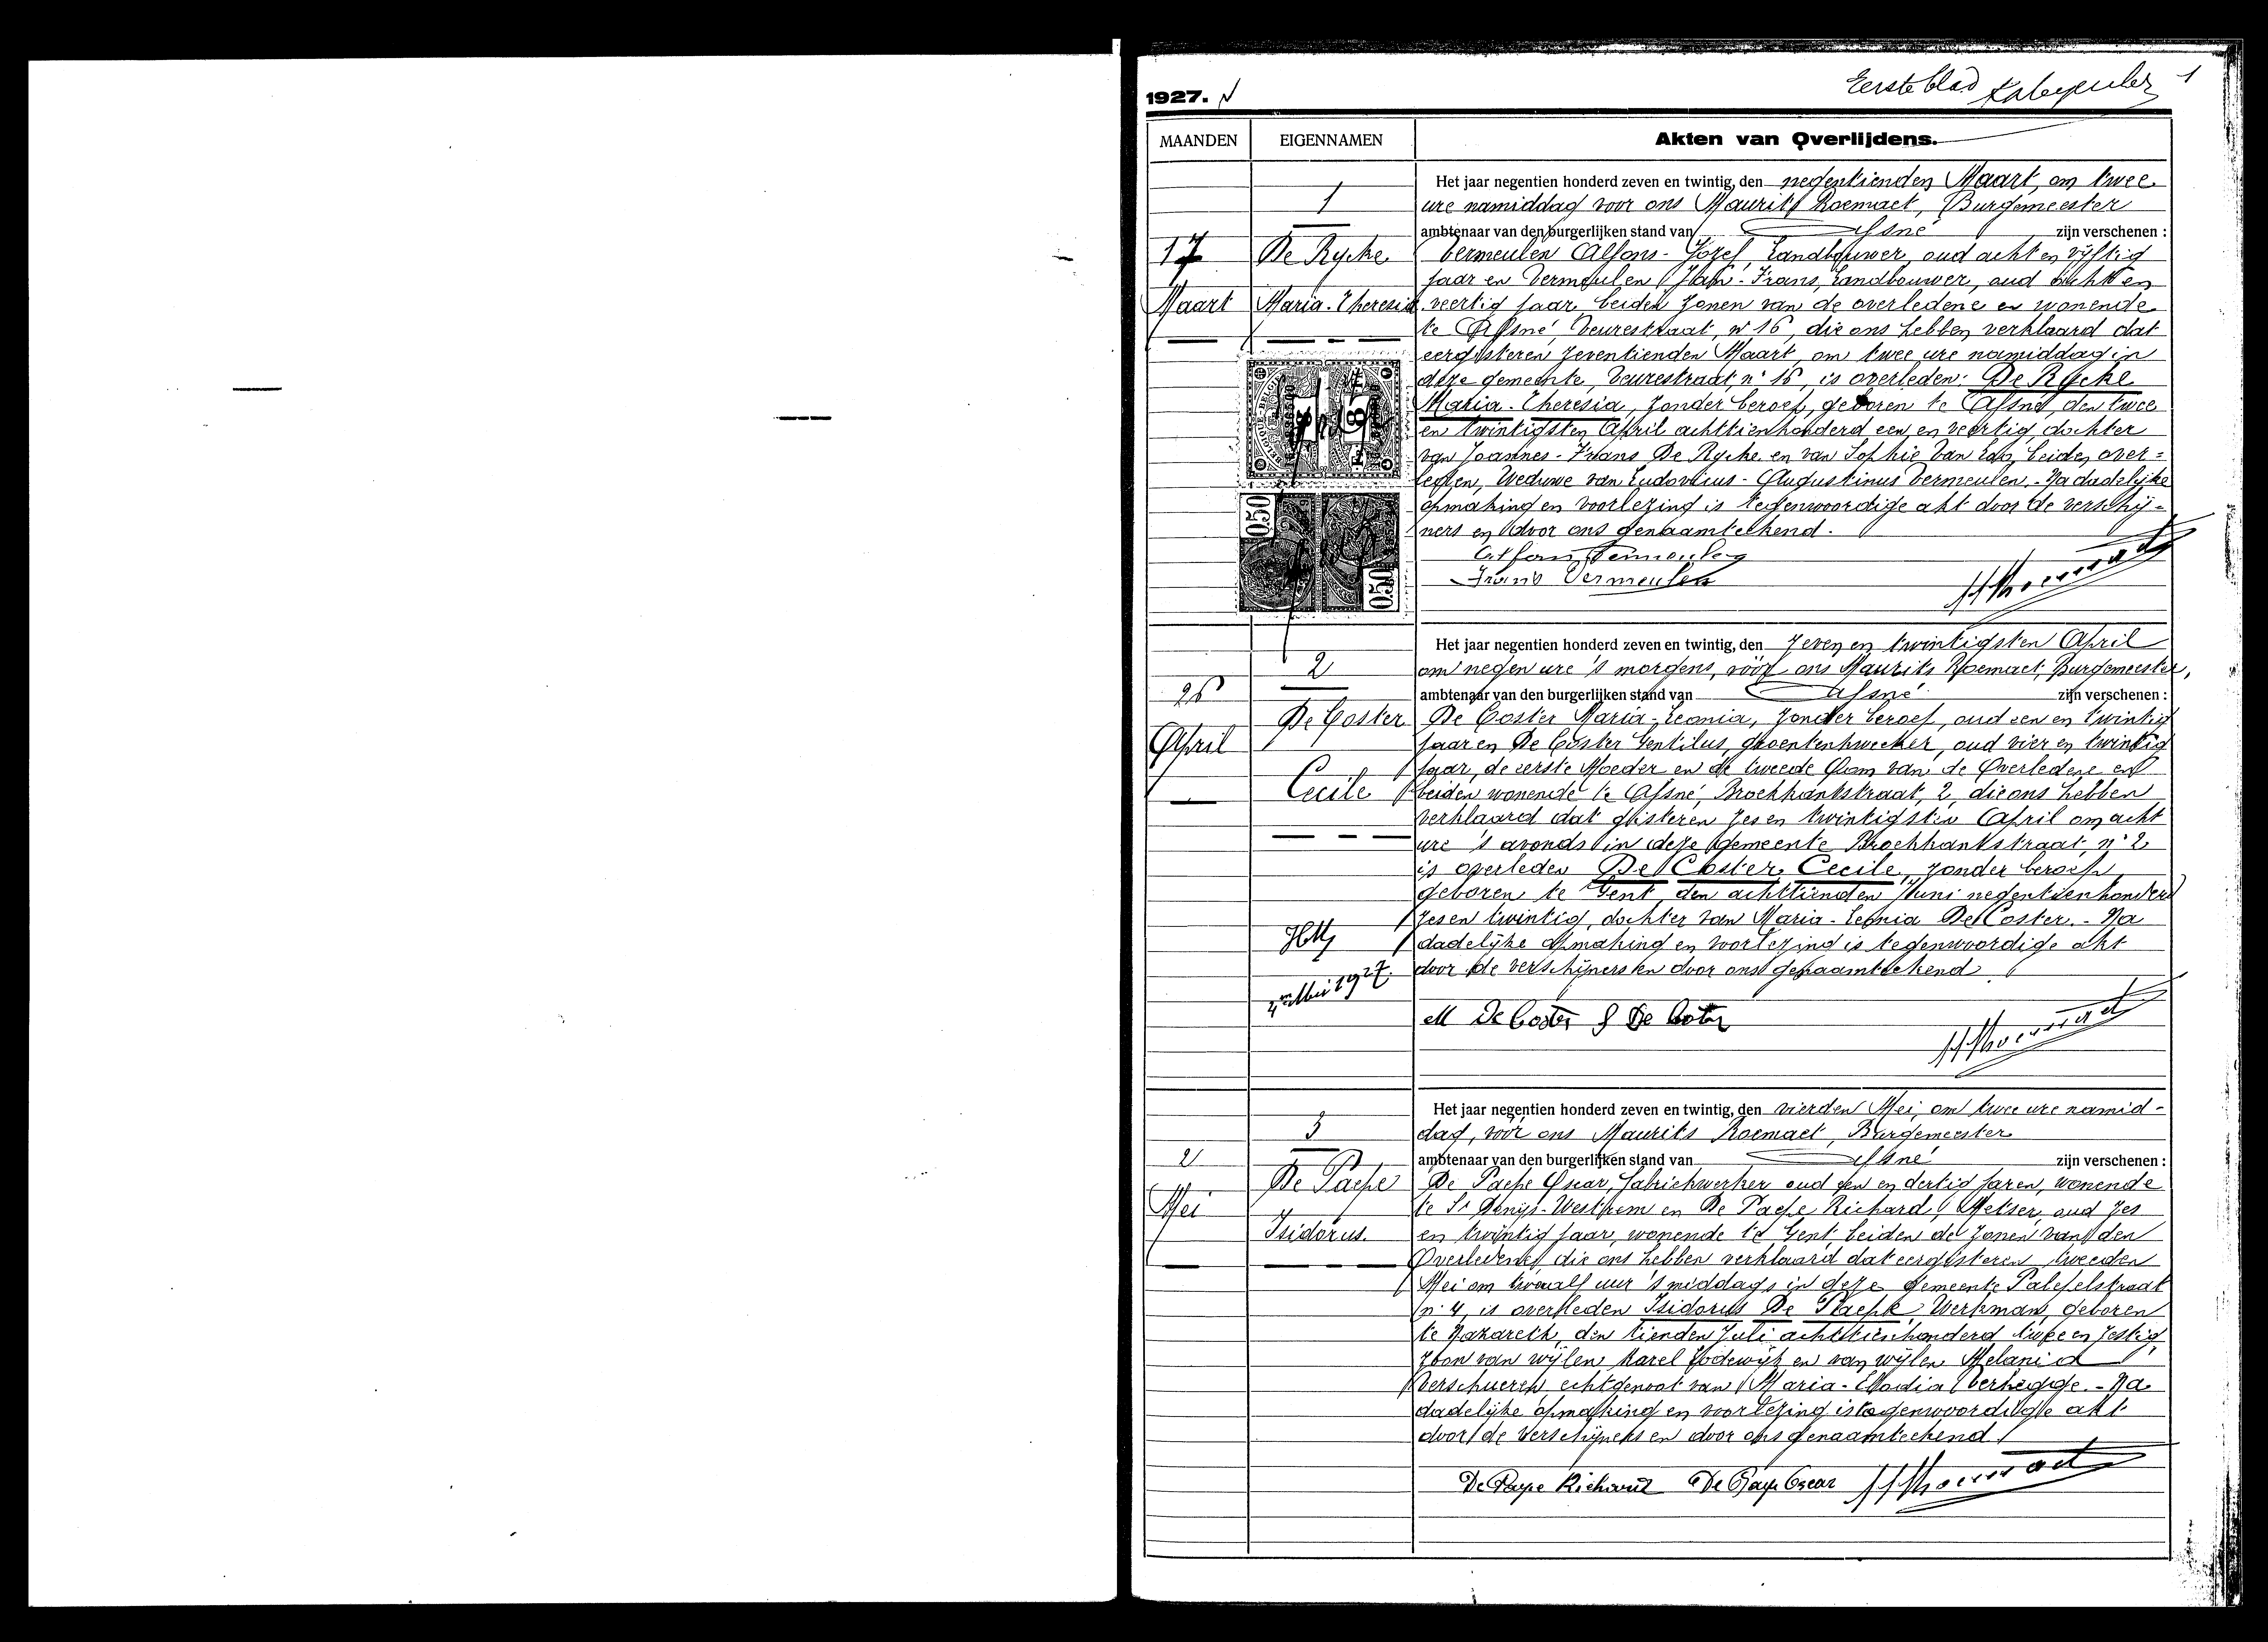 Eerste blad 1
1927.
MAANDEN EIGENNAMEN Akten van Overlijdens.
1
17
Maart
De Rycke
Maria-Theresia
Het jaar negentien honderd zeven en twintig, den negentienden Maart, om twee
ure namiddag voor ons Maurits Roemaet, Burgemeester
ambtenaar van den burgerlijken stand van Afsné zijn verschenen :
Vermeulen Alfons-Jozef, Landbouwer, oud acht en vijftig
jaar en Vermeulen Jan-Frans, Landbouwer, oud acht en
veertig jaar, beiden zonen van de overledene en wonende
te Afsné, Veurestraat, nr 16, die ons hebben verklaard dat
eergisteren zeventienden Maart, om twee ure namiddag in
deze gemeente, Veurestraat, n° 16, is overleden: De Rycke
Maria-Theresia, zonder beroep, geboren te Afsné, den twee
en twintigsten April achttienhonderd een en veertig, dochter
van Joannes-Frans De Rycke en van Sophie Van Loo, beiden over=
leden, Weduwe van Ludovicus-Augustinus Vermeulen.- Na dadelijke
opmaking en voorlezing is tegenwoordige akt door de verschij-
ners en door ons genaamteekend.
Alfons Vermeulen
Frans Vermeulen
0.50
0.50
2
26
April
De Coster
Cecile
Het jaar negentien honderd zeven en twintig, den zeven en twintigsten April
om negen ure 's morgens, vóór ons Maurits Roemaet, Burgemeester,
ambtenaar van den burgerlijken stand van Afsné zijn verschenen :
De Coster Maria-Leonia, zonder beroep, oud een en twintig
jaar en De Coster Gentilus, groentenkweeker, oud vier en twintig
jaar, de eerste Moeder en de tweede Oom van de Overledene en
beiden wonende te Afsné, Broekkantstraat, 2, die ons hebben
verklaard dat gisteren zes en twintigsten April om acht
ure 's avonds in deze gemeente Broekkantstraat, n° 2
is overleden De Coster, Cecile, zonder beroep,
geboren te Gent, den achttienden Juni negentienhonderd
zes en twintig, dochter van Maria-Leonia De Coster.- Na
dadelijke opmaking en voorlezing is tegenwoordige akt
door de verschijners en door ons genaamteekend
Mei 1927.
M De Coster G De Coster
3
2
Mei
De Paepe
Isidorus.
Het jaar negentien honderd zeven en twintig, den vierden Mei, om twee ure namid-
dag, vóór ons Maurits Roemaet, Burgemeester
ambtenaar van den burgerlijken stand van Afsné zijn verschenen :
De Paepe Oscar, fabriekwerker oud een en dertig jaren, wonende
te St Denijs-Westrem en De Paepe Richard, Metser, oud zes
en twintig jaar, wonende te Gent beiden de zonen van den
Overledene, die ons hebben verklaard dat eergisteren tweeden
Mei om twaalf uur 's middags in deze gemeente
n° 4, is overleden Isidorus De Paepe, Werkman, geboren
te Nazareth, den tienden Juli achttienhonderd twee en zestig,
zoon van wijlen Karel Lodewijk en van wijlen Melania
Verschueren echtgenoot van Maria-Elodia Verhegge.- Na
dadelijke opmaking en voorlezing is tegenwoordige akt
door de verschijners en door ons genaamteekend
De Paepe Richard De Paepe Oscar